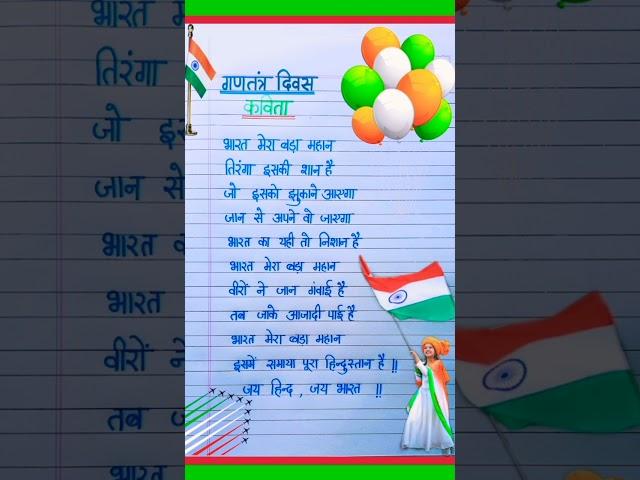 गणतंत्र दिवस
कविता
भारत मेरा बड़ा महान
तिरंगा इसकी शान है
जो इसको झुकाने आएगा
जान से अपने वो जाएगा
भारत का यही तो निशान है
भारत मेरा बड़ा महान
वीरों ने जान गंवाई है
तब जाके आजादी पाई है
भारत मेरा बड़ा महान
इसमें समाया पूरा हिन्दुस्तान है !!
जय हिन्द , जय भारत !!